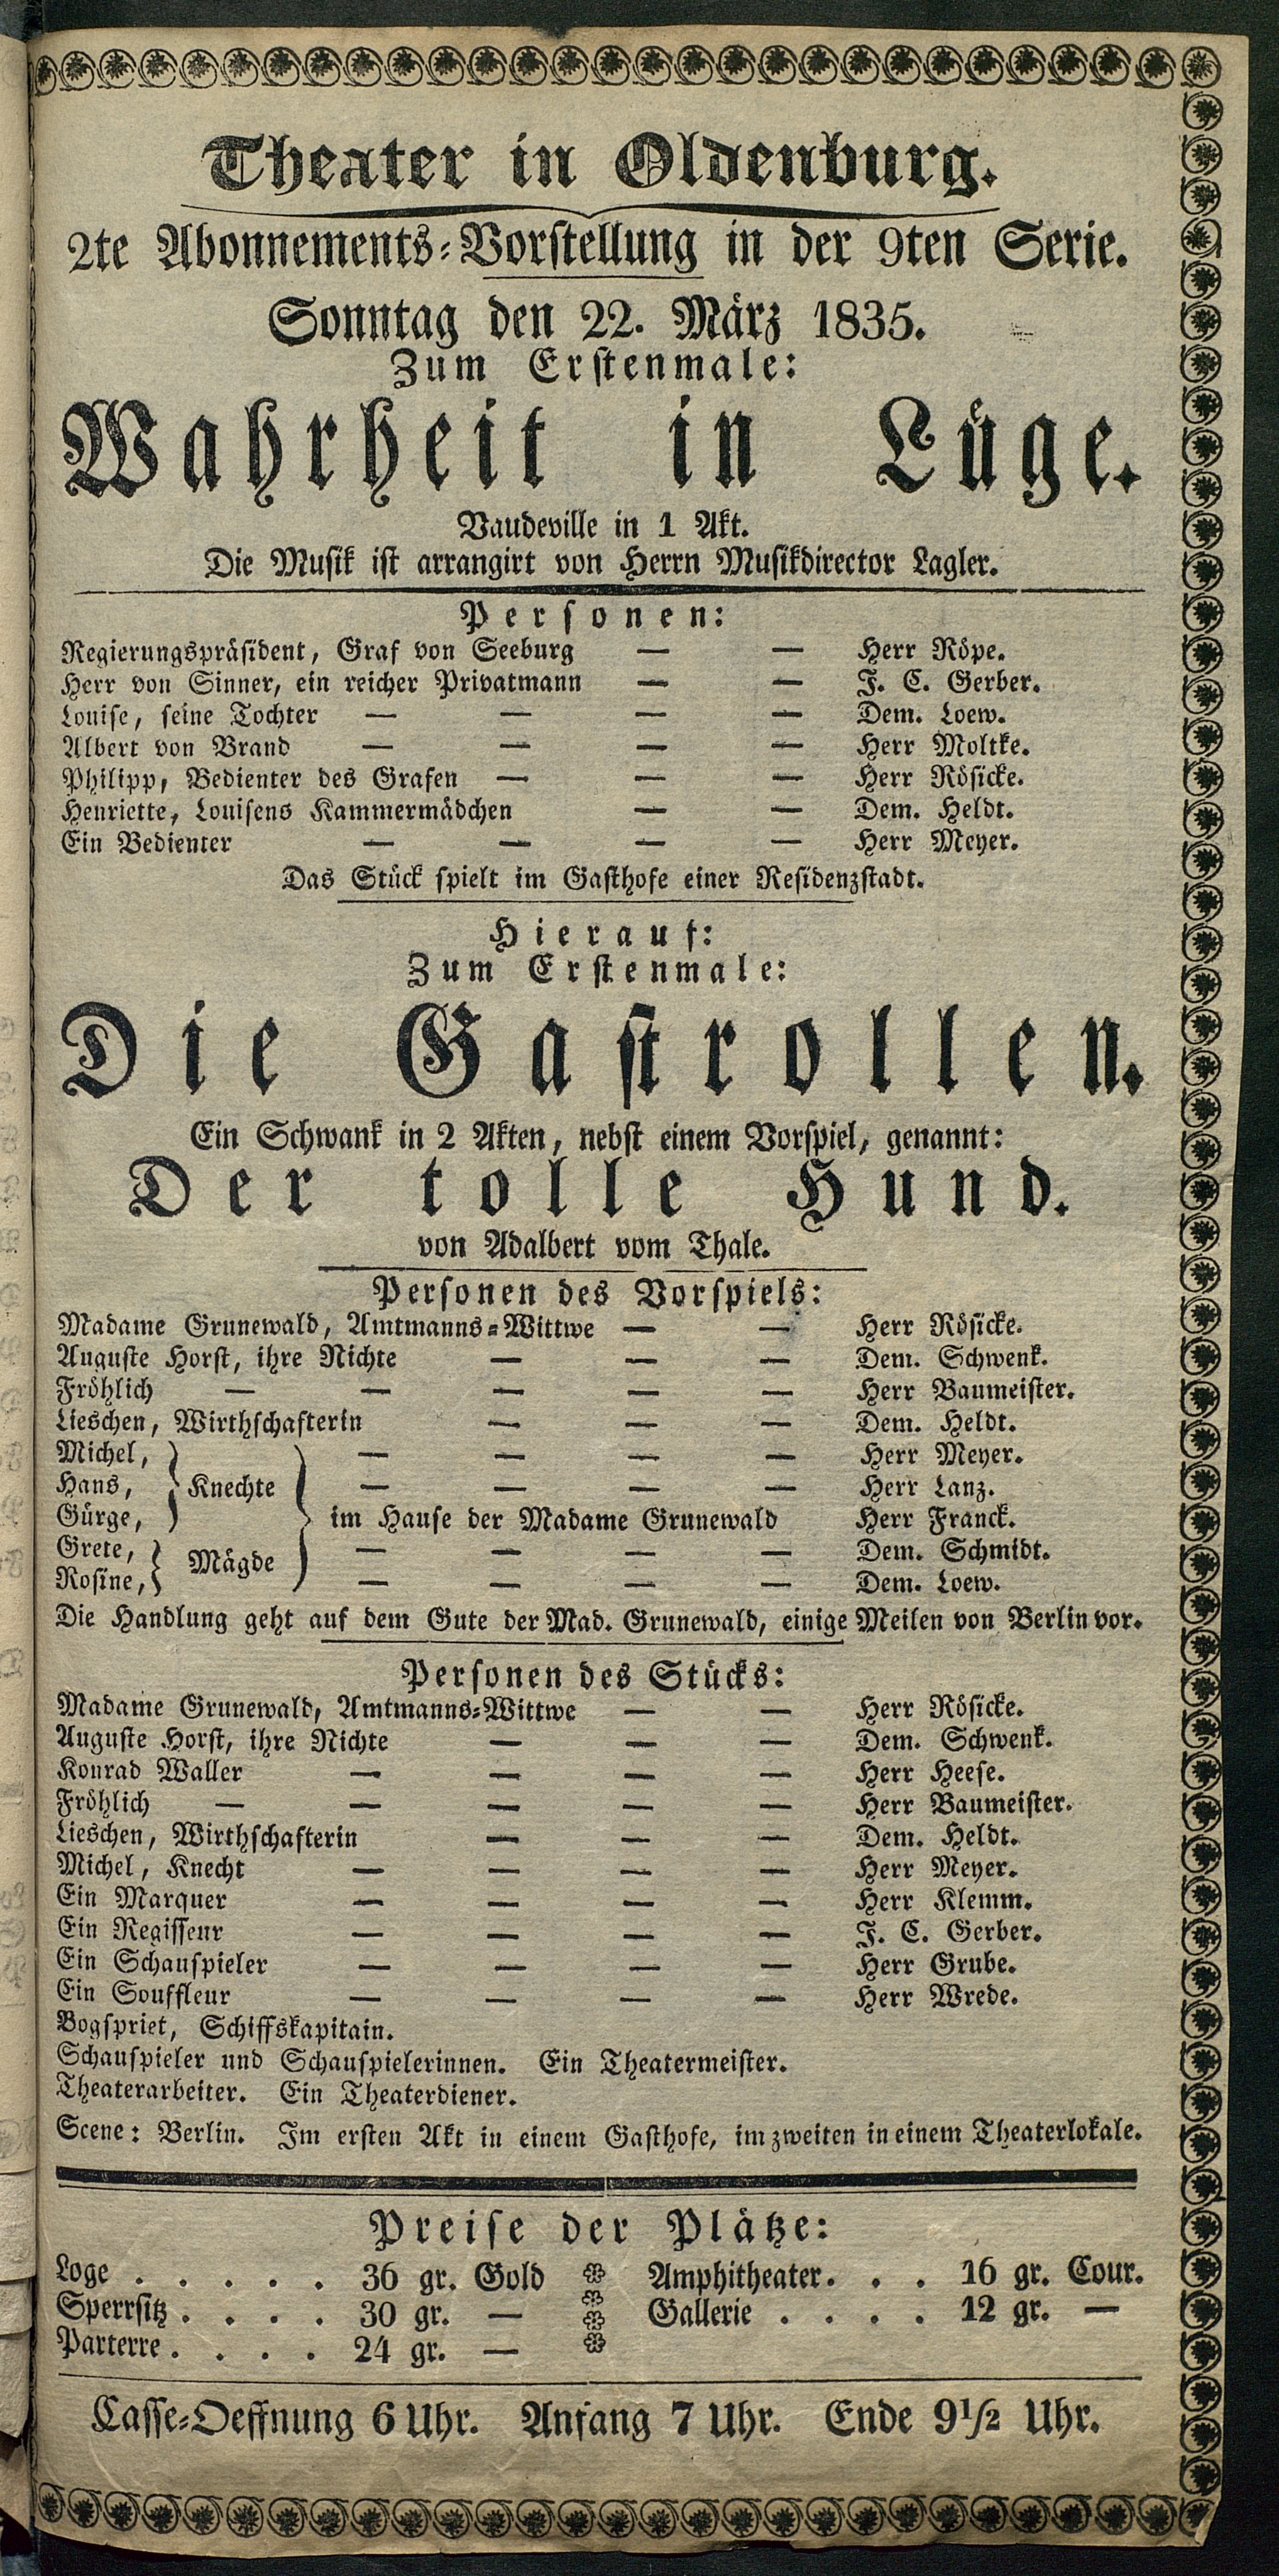 Theater in Oldenburg.
2te Abonnements-Vorstellung in der 9ten Serie.
Sonntag den 22. März 1835.
Zum Erstenmale:
Wahrheit in Lüge.
Vaudeville in 1 Akt.
Die Musik ist arrangirt von Herrn Musikdirector Lagler.
Personen:
Regierungspräsident, Graf von Seeburg — — Herr Röpe.
Herr von Sinner, ein reicher Privatmann — — J. C. Gerber.
Louise, seine Tochter — — — — Dem. Loew.
Albert von Brand — — — — Herr Moltke.
Philipp, Bedienter des Grafen — — — Herr Rösicke.
Henriette, Louisens Kammermädchen — — Dem. Heldt.
Ein Bedienter — — — — Herr Meyer.
Das Stück spielt im Gasthofe einer Residenzstadt.
Hierauf:
Zum Erstenmale:
Die Gastrollen.
Ein Schwank in 2 Akten, nebst einem Vorspiel, genannt:
Der tolle Hund.
von Adalbert vom Thale.
Personen des Vorspiels:
Madame Grunewald, Amtmanns-Wittwe — — Herr Rösicke.
Auguste Horst, ihre Nichte — — — Dem. Schwenk.
Fröhlich — — — — — Herr Baumeister.
Lieschen, Wirthschafterin — — — Dem. Heldt.
Michel, — — — — Herr Meyer.
Hans, } Knechte — — — — Herr Lanz.
Gürge, } im Hause der Madame Grunewald Herr Franck.
Grete, } Mägde — — — — Dem. Schmidt.
Rosine, — — — — Dem. Loew.
Die Handlung geht auf dem Gute der Mad. Grunewald, einige Meilen von Berlin vor.
Personen des Stücks:
Madame Grunewald, Amtmanns-Wittwe — — Herr Rösicke.
Auguste Horst, ihre Nichte — — — Dem. Schwenk.
Konrad Waller — — — — Herr Heese.
Fröhlich — — — — — Herr Baumeister.
Lieschen, Wirthschafterin — — — Dem. Heldt.
Michel, Knecht — — — — Herr Meyer.
Ein Marquer — — — — Herr Klemm.
Ein Regisseur — — — — J. C. Gerber.
Ein Schauspieler — — — — Herr Grube.
Ein Souffleur — — — — Herr Wrede.
Bogspriet, Schiffskapitain.
Schauspieler und Schauspielerinnen. Ein Theatermeister.
Theaterarbeiter. Ein Theaterdiener.
Scene: Berlin. Im ersten Akt in einem Gasthofe, im zweiten in einem Theaterlokale.
Preise der Plätze:
Loge . . . . . 36 gr. Gold
Sperrsitz . . . . 30 gr. —
Parterre . . . . 24 gr. —
Amphitheater . . . 16 gr. Cour.
Gallerie . . . . 12 gr. —
Casse-Oeffnung 6 Uhr. Anfang 7 Uhr. Ende 9½ Uhr.